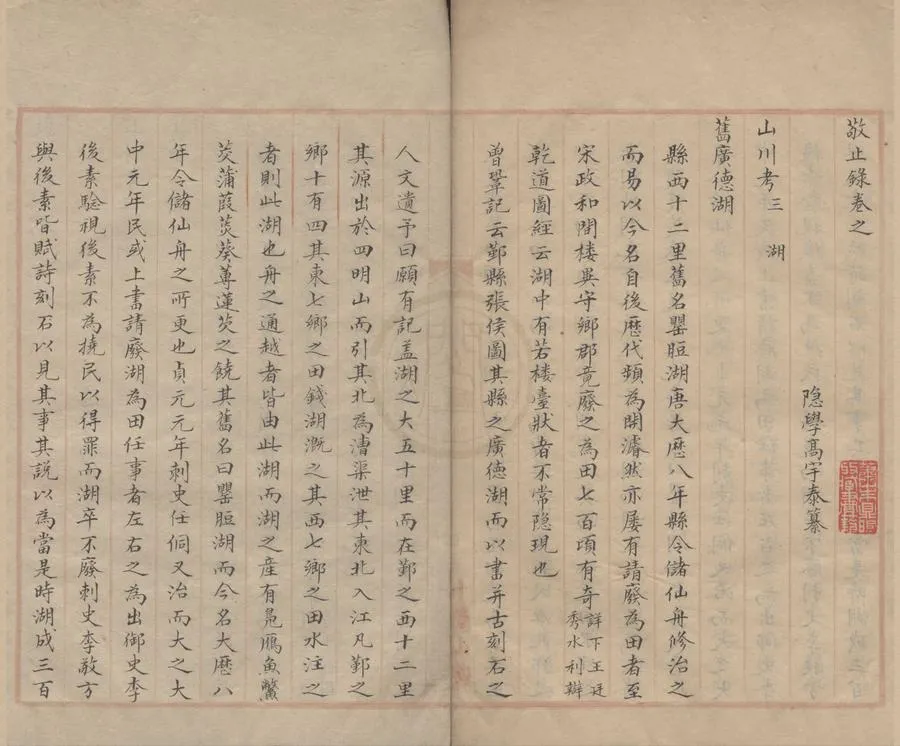 敬止錄卷之
隐學高宇泰纂
山川考三 湖
舊廣德湖
縣西十二里舊名罌脰湖唐大歷八年縣令儲仙舟修治之
而易以今名自後歷代頻為開濬然亦屢有請廢為田者至
宋政和間樓异守鄉郡竟廢之為田七百頃有奇詳下王廷秀水利辯
乾道圖經云湖中有若樓臺狀者不常隐現也
曾鞏記云鄞縣張侯圖其縣之廣德湖而以書并古刻石之
人文遺予曰願有記盖湖之大五十里而在鄞之西十二里
其源出於四明山而引其北為漕渠泄其東北入江凡鄞之
鄉十有四其東七鄉之田錢湖溉之其西七鄉之田水注之
者則此湖也舟之通越者皆由此湖而湖之産有凫鴈魚鱉
茭蒲葭菼葵蓴蓮芡之饒其舊名曰罌脰湖而今名大歷八
年令儲仙舟之所更也貞元元年刺史任侗又治而大之大
中元年民或上書請廢湖為田任事者左右之為出御史李
後素驗視後素不為撓民以得罪而湖卒不廢刺史李敬方
與後素皆賦詩刻石以見其事其説以為當是時湖成三百